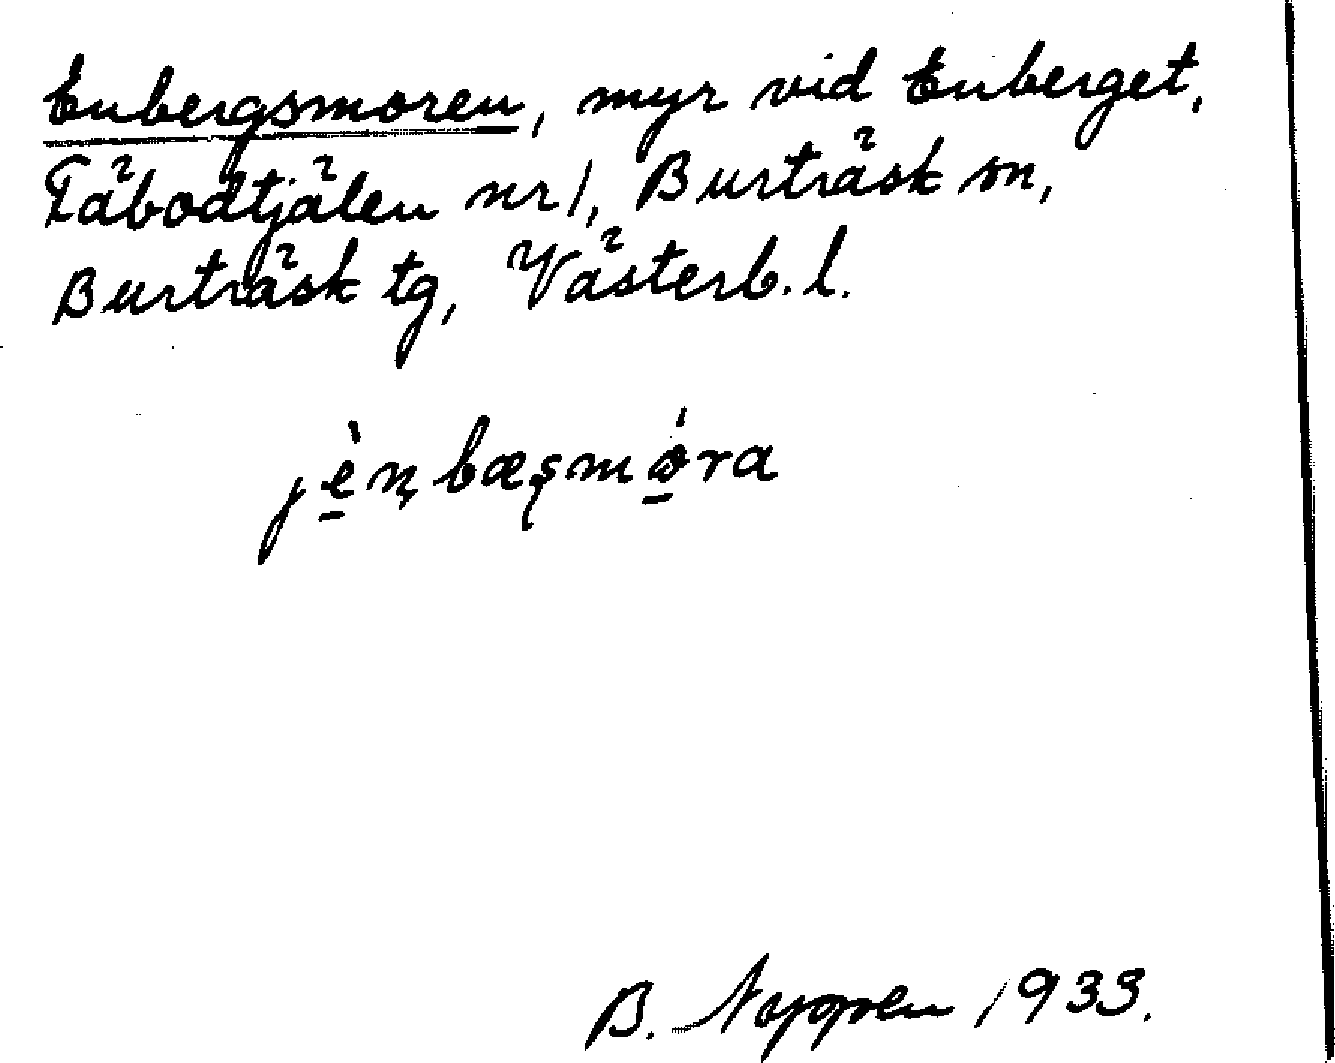 Enbergsmoren, myr vid Enberget,
Fäbodtjälen nr 1, Burträsk sn,
Burträsk tg, Västerb. l.
jè̠n̨bæşmó̠ra
B. 1933.